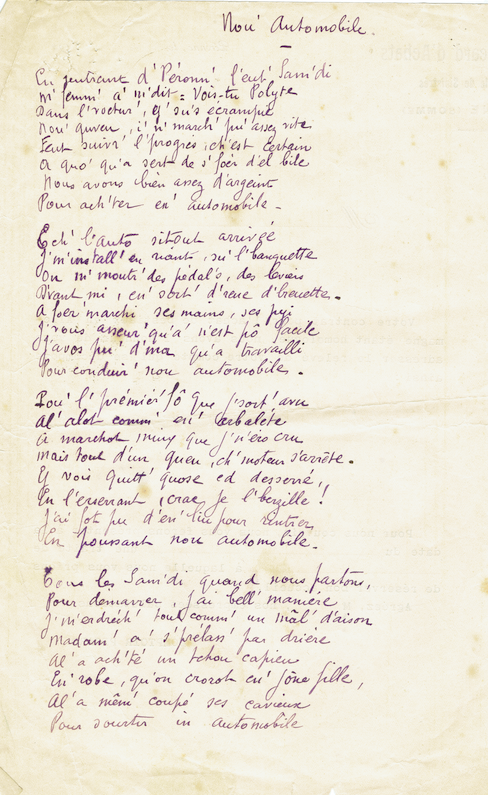 Nou' Automobile.
En rentrant d'Péronn' l'eut' Sam'di
M' femm' a' m'dit = Vois-tu Polyte
Dans l'voetur', j'sui's écrampie
Nou' guveu, i n' march' pu' assez vite
Feut suivr' l'progrès, ch'est certain
A quo' qu'a sert de s'foér d'el bile
Nous avons bien assez d'argeint
Pour ach'ter en' automobile -
Ech' l'auto sitout arrivée
J'm'install' en riant, su' l'banquette
On m' montr' des pédal's, des leviers
D'vant mi, en' sort' d'reue d'breuette.
A foér marchi ses mains, ses pyi
J'vous asseur' qu'a' n'est pô facile
J'avos pu' d'ma qu'a travailli
Pour conduir' nou automobile.
Pou' l' prémièr' fô que j'sort' avu
Al' alot comm' en' arbalète
A marchot muux que j'n'éro cru
Mais tout d'un queu, ch' moteur s'arrête.
Ej vois quitt' quose ed desserré,
En l'erserrant, crac, je l'berzille!
J'ai fot pu d'en' liu pour rentrer
En poussant nou automobile.
Tous les Sam'di quand nous partons,
Pour démarrer, j'ai bell' manière
J'm'erdrech' tout comm' un mâl' d'aison
Madam' a' s'prélass' par drière
Al'a ach'té un tchou capieu
En' robe, qu'on crorot en' jône fille,
Al'a mêm' coupé ses cavieux
Pour sourtir in automobile